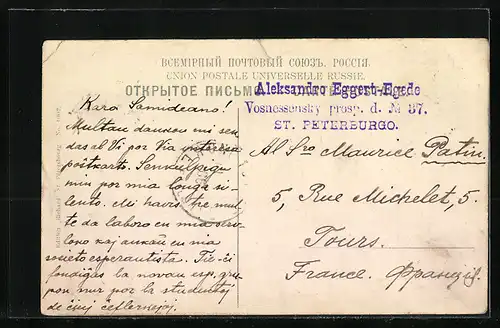 ВСЕМІРНЫЙ ПОЧТОВЫЙ СОЮЗЪ. РОССІЯ.
UNION POSTALE UNIVERSELLE RUSSIE.
ОТКРЫТОЕ ПИСЬМО.
Aleksandro Eggert-Egede
Vosnessensky prosp. d. № 37.
ST. PETERBURGO.
Kara Samideano!
Multan dankon mi sen
das al Vi por Via interesa
poŝtkarto. Senkulpigu
min por mia longa si-
lento. Mi havis tre mul-
te da laboro en mia ser-
kaj ankaŭ en nia
societo esperantista. Tie-ĉi
fondiĝas la novan esp. gru-
pon nur por la studentoj
de ĉiuj
Al Sro Maurice Patin.
5, Rue Michelet, 5.
Tours.
France. Франція.